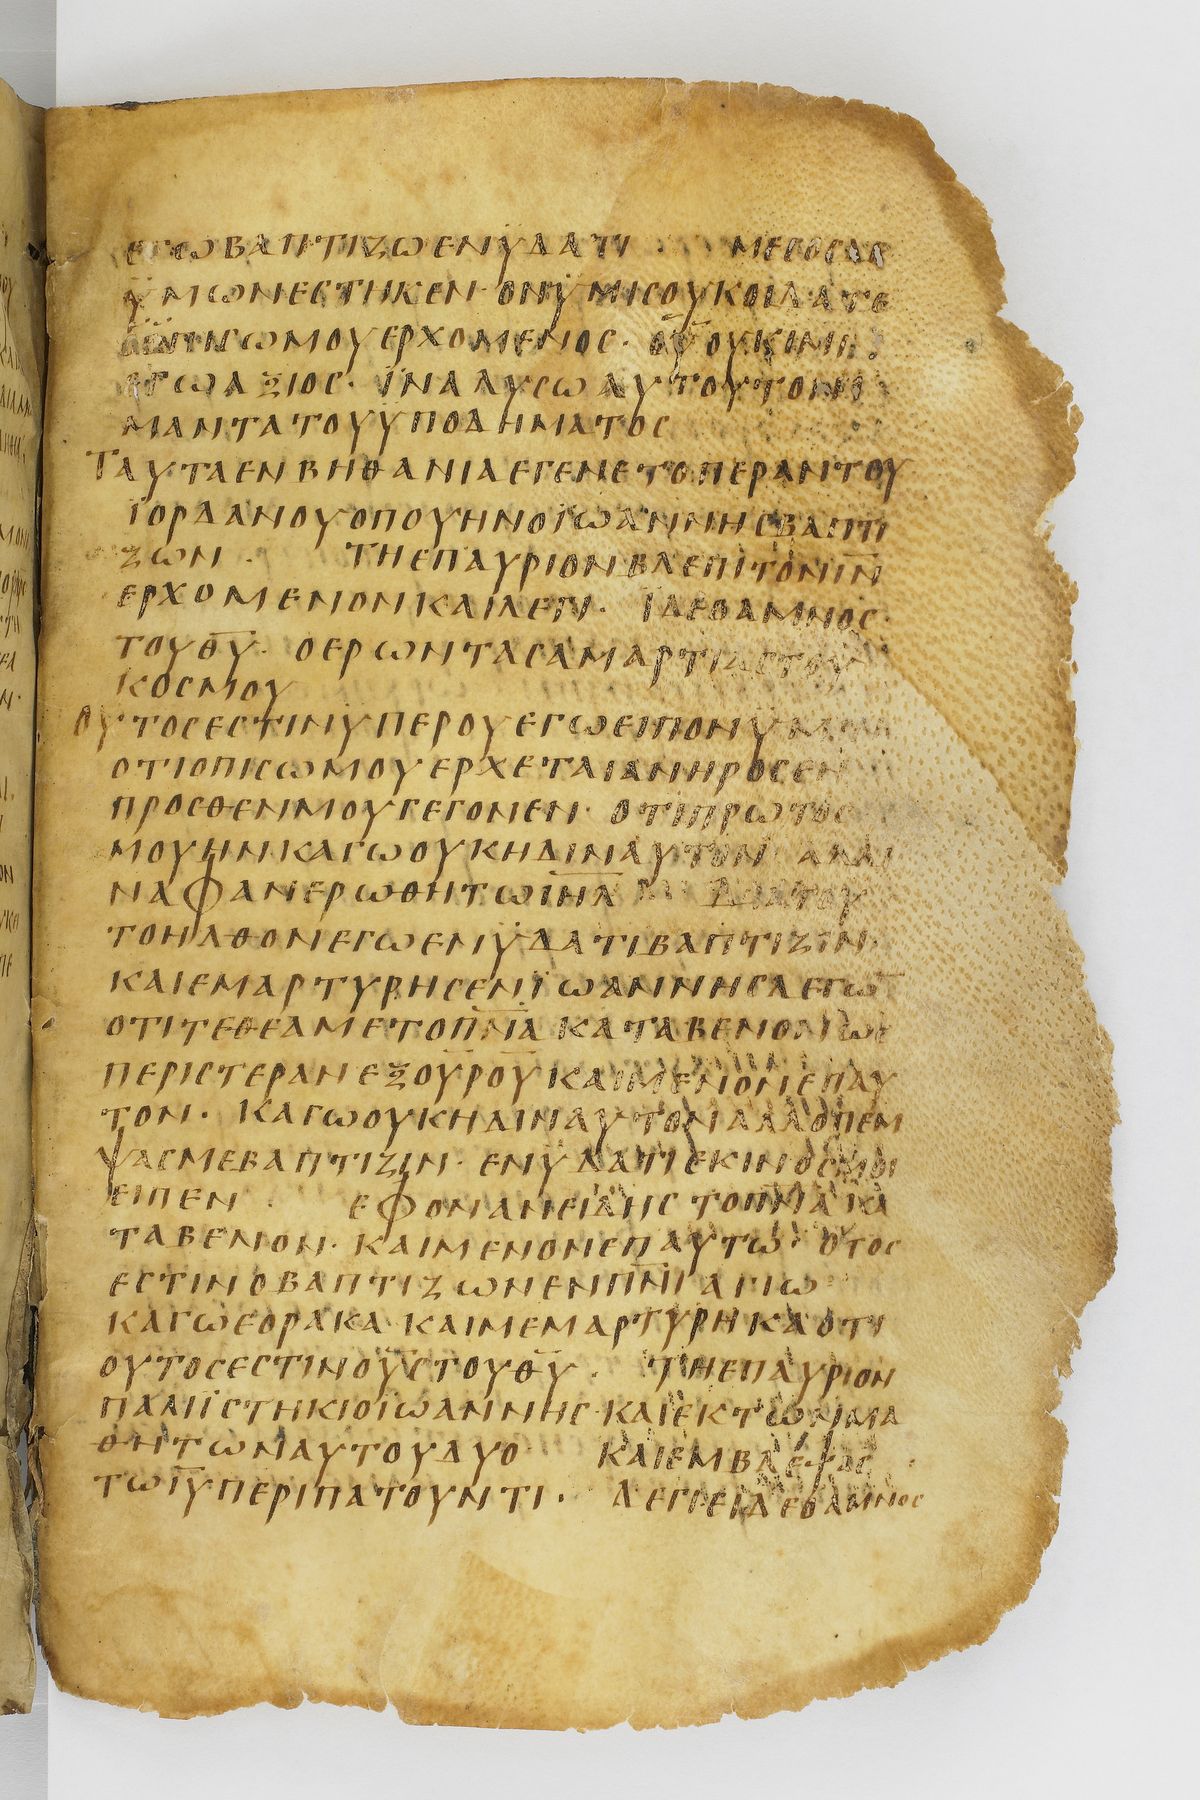 ΕΓΩΒΑΠΤΙΖΩΕΝΫΔΑΤΙ ΜΕCΟCΔΕ
ΫΜΩΝΕCΤΗΚΕΝ· ΟΝΫΜΙCΟΥΚΟΙΔΑΤΕ
ΟΠΙCΩΜΟΥΕΡΧΟΜΕΝΟC· ΟΥΟΥΚΙΜΙ
ΕΓΩΑΞΙΟC· ΪΝΑΛΥCΩΑΥΤΟΥΤΟΝΙ
ΜΑΝΤΑΤΟΥΥΠΟΔΗΜΑΤΟC
ΤΑΥΤΑΕΝΒΗΘΑΝΙΑΕΓΕΝΕΤΟΠΕΡΑΝΤΟΥ
ΪΟΡΔΑΝΟΥΟΠΟΥΗΝΟΪΩΑΝΝΗCΒΑΠΤΙ
ΖΩΝ· ΤΗΕΠΑΥΡΙΟΝΒΛΕΠΙΤΟΝΙ̅Ν̅
ΕΡΧΟΜΕΝΟΝΚΑΙΛΕΓΙ· ΪΔΕΟΑΜΝΟC
ΤΟΥΘ̅Υ̅· ΟΕΡΩΝΤΑCΑΜΑΡΤΙΑCΤΟΥ
ΚΟCΜΟΥ
ΟΥΤΟCΕCΤΙΝΥΠΕΡΟΥΕΓΩΕΙΠΟΝΫΜΙΝ
ΟΤΙΟΠΙCΩΜΟΥΕΡΧΕΤΑΙΑΝΗΡΟCΕΜ
ΠΡΟCΘΕΝΜΟΥΓΕΓΟΝΕΝ· ΟΤΙΠΡΩΤΟC
ΜΟΥΗΝΚΑΓΩΟΥΚΗΔΙΝΑΥΤΟΝ ΑΛΛΙ
ΝΑΦΑΝΕΡΩΘΗΤΩΙ̅Η̅Λ̅ ΔΙΑΤΟΥ
ΤΟΗΛΘΟΝΕΓΩΕΝΫΔΑΤΙΒΑΠΤΙΖΙΝ·
ΚΑΙΕΜΑΡΤΥΡΗCΕΝΪΩΑΝΝΗCΛΕΓΩ̅
ΟΤΙΤΕΘΕΑΜΕΤΟΠ̅Ν̅Α̅ ΚΑΤΑΒΕΝΟΝΩC
ΠΕΡΙCΤΕΡΑΝΕΞΟΥ̅Ρ̅Ο̅Υ̅ΚΑΙΜΕΝΟΝΕΠΑΥ
ΤΟΝ· ΚΑΓΩΟΥΚΗΔΙΝΑΥΤΟΝΑΛΛΟΠΕΜ
ΨΑCΜΕΒΑΠΤΙΖΙΝ· ΕΝΫΔΑΤΙΕΚΙΝΟCΜΟΙ
ΕΙΠΕΝ ΕΦΟΝΑΝΕΙΔΗCΤΟΠ̅Ν̅Α̅ΚΑ
ΤΑΒΕΝΟΝ· ΚΑΙΜΕΝΟΝΕΠΑΥΤΩ· ΟΥΤΟC
ΕCΤΙΝΟΒΑΠΤΙΖΩΝΕΝΠ̅Ν̅Ι̅ΑΓΙΩ
ΚΑΓΩΕΟΡΑΚΑ ΚΑΙΜΕΜΑΡΤΥΡΗΚΑΟΤΙ
ΟΥΤΟCΕCΤΙΝΟΥ̅C̅ΤΟΥΘ̅Υ̅· ΤΗΕΠΑΥΡΙΟΝ
ΠΑΛΙΪCΤΗΚΙΟΪΩΑΝΝΗC ΚΑΙΕΚΤΩΝΜΑ
ΘΗΤΩΝΑΥΤΟΥΔΥΟ ΚΑΙΕΜΒΛΕΨΑC
ΤΩΙ̅Υ̅ΠΕΡΙΠΑΤΟΥΝΤΙ· ΛΕΓΙΕΙΔΕΟΑΜΝΟC